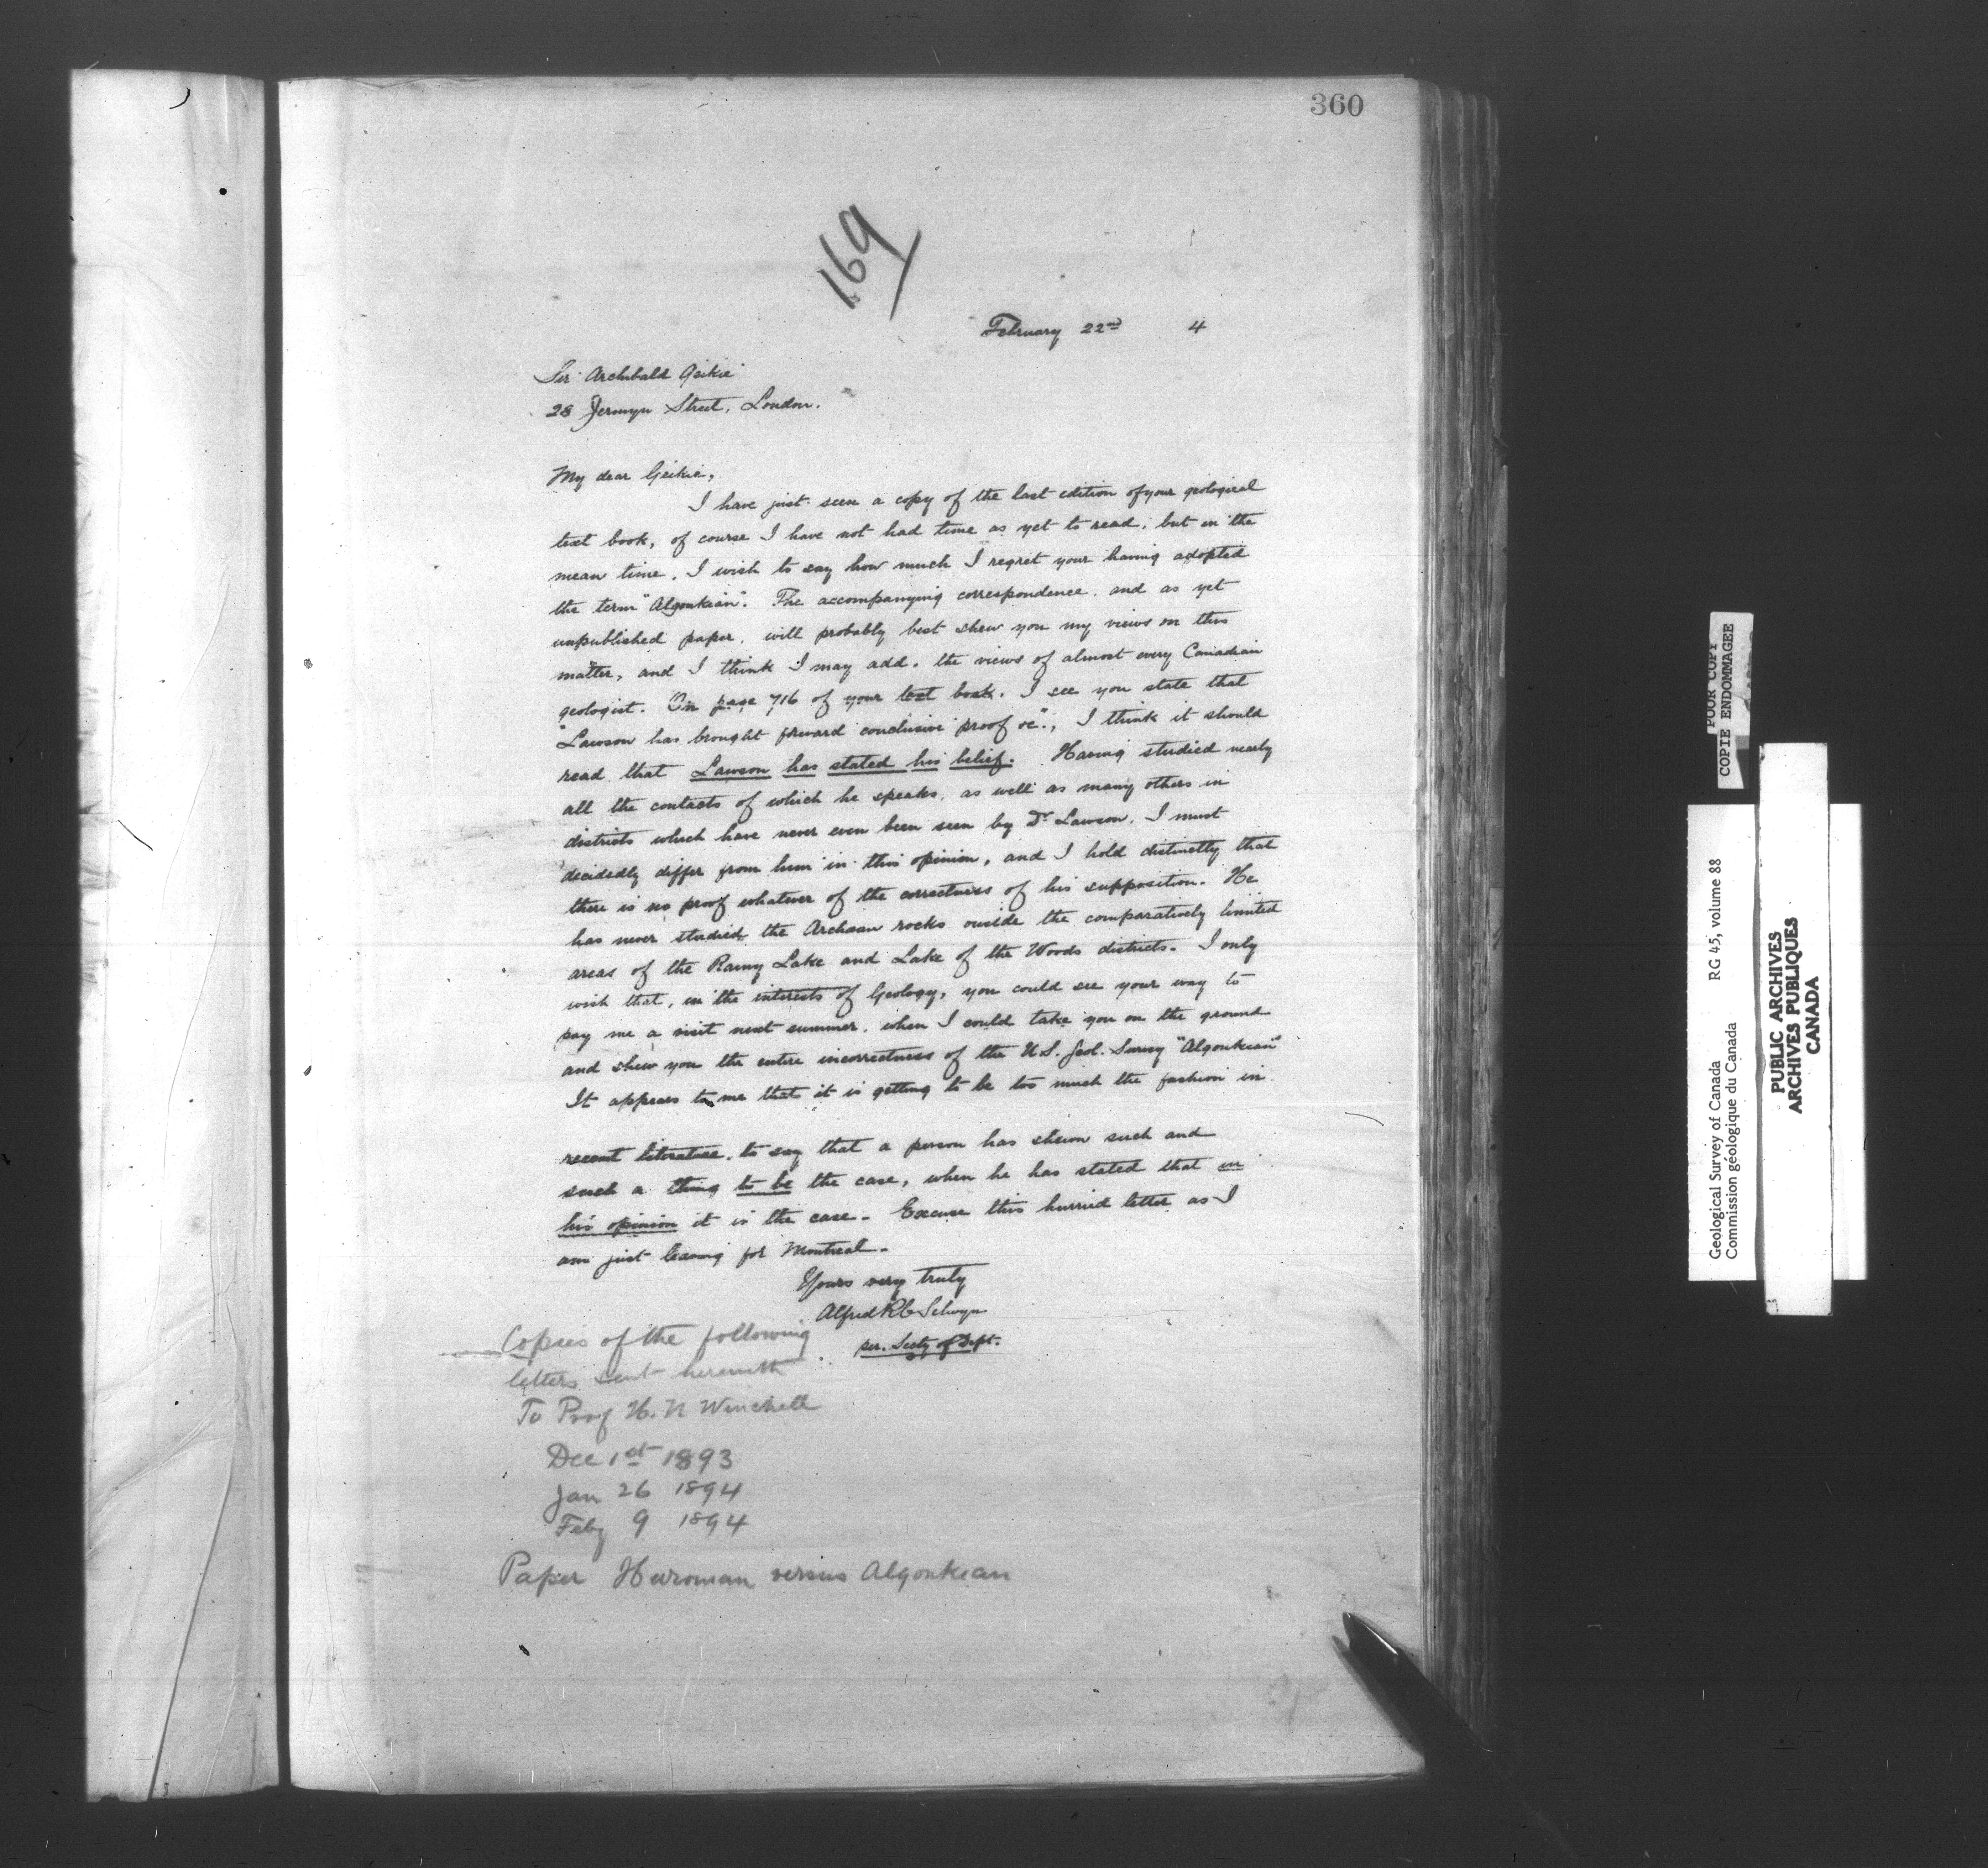 360
169
February 22nd 4
Sir Archibald Geikie
28 Jermyn Street, London.
My dear Geikie,
I have just seen a copy of the last edition of your geological
text book, of course I have not had time as yet to read; but in the
mean time, I wish to say how much I regret your having adopted
the term "Algonkian". The accompanying correspondence, and as yet
unpublished paper, will probably best shew you my views on this
matter, and I think I may add, the views of almost every Canadian
geologist. On page 716 of your text book, I see you state that
"Lawson has brought forward conclusive proof &c", I think it should
read that Lawson has stated his belief. Having studied nearly
all the contacts of which he speaks, as well as many others in
districts which have never even been seen by Dr Lawson, I must
decidedly differ from him in this opinion, and I hold distinctly that
there is no proof whatever of the correctness of his supposition. He
has never studied the Archaean rocks ouside the comparatively limited
areas of the Rainy Lake and Lake of the Woods districts. I only
wish that, in the interests of Geology, you could see your way to
pay me a visit next summer, when I could take you on the ground
and shew you the entire incorrectness of the U.S. Geol. Survey "Algonkian"
It appears to me that it is getting to be too much the fashion in
recent literature, to say that a person has shewn such and
such a thing to be the case, when he has stated that in
his opinion it is the case. Excuse this hurried letter as I
am just leaving for Montreal.
Yours very truly
Alfred R C Selwyn
per. Secty of Dept.
Copies of the following
letters sent herewith
To Prof N. H. Winchell
Dec 1st 1893
Jan 26 1894
Feby 9 1894
Paper Huronian versus Algonkian
POOR COPY
COPIE ENDOMMAGEE
Geological Survey of Canada RG 45, volume 88
Commission géologique du Canada
PUBLIC ARCHIVES
ARCHIVES PUBLIQUES
CANADA